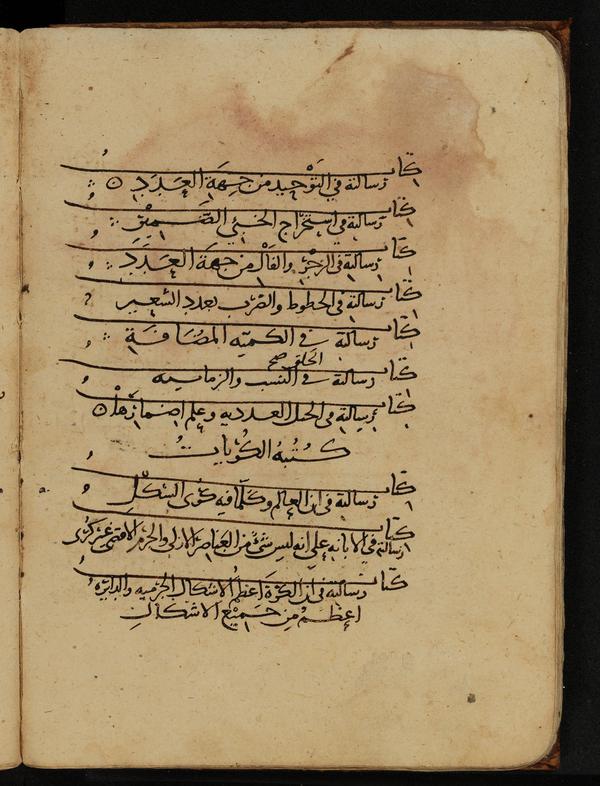 كتاب رسالته في التَوْحِيد من جِهَة العَدَدِ
كتاب رسالته في استخراج الخبئ الضَّمِيْر
كتاب رسالته في الزجر والفأل من جهة العَدَدِ
كتاب رسالته في الخطوط والضرب بعدد الشعير
كتاب رسالته في الكميه المضافة
كتاب رسالته في النسب والزمانيه
الحلقي صح
كتاب رسالته في الحيل العدديه وعلم اضمارها
كُتبهُ الكُرِيات
كتاب رسالته في ان العالم وكلما فيه كرى الشكل
كتاب رسالته في الابانه على انه ليس شئ من العناصر الاولى والجرم الاقصى غير كرى
كتاب رسالته في ان الكرة اعظم الاشكال الجرميه والدائره
اعظم من جميع الاشكال